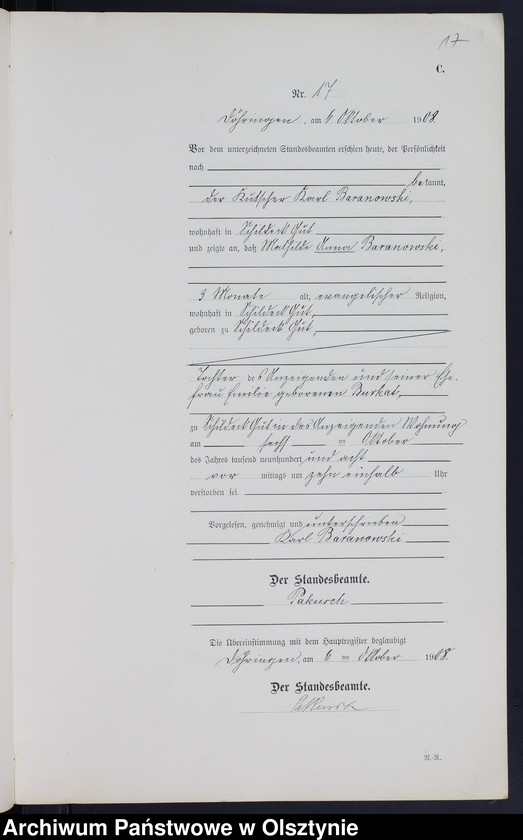 17
C.
Nr. 17
Döhringen, am 6 Oktober 1908.
Vor dem unterzeichneten Standesbeamten erschien heute, der Persönlichkeit
nach
bekannt,
der Kutscher Karl Baranowski,
wohnhaft in Schildeck Gut
und zeigte an, daß Mathilde Anna Baranowski,
3 Monate alt, evangelischer Religion,
wohnhaft in Schildeck Gut,
geboren zu Schildeck Gut,
Tochter des Anzeigenden und seiner Ehe-
frau Emilie geborenen Burkat,
zu Schildeck Gut in des Anzeigenden Wohnung
am sechs ten Oktober
des Jahres tausend neunhundert und acht
vor mittags um zehn einhalb Uhr
verstorben sei.
Vorgelesen, genehmigt und unterschrieben
Karl Baranowski
Der Standesbeamte.
Pakusch
Die Übereinstimmung mit dem Hauptregister beglaubigt
Döhringen, am 6 ten Oktober 1908.
Der Standesbeamte.
Archiwum Państwowe w Olsztynie